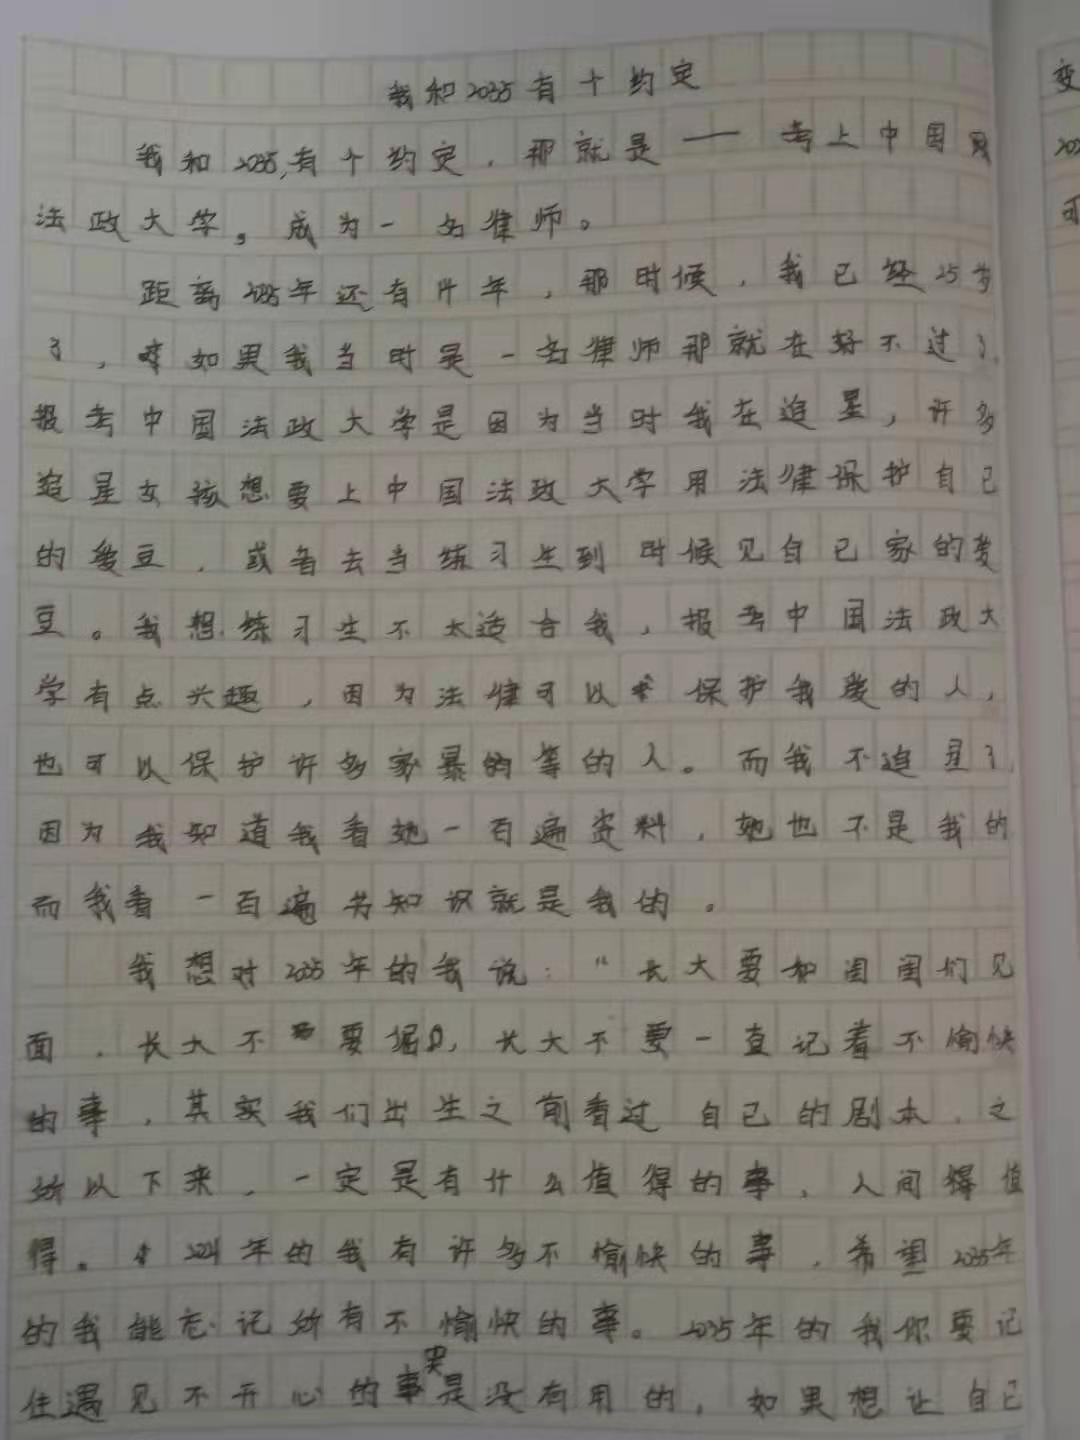 我和2035有个约定
我和2035,有个约定，那就是——考上中国
法政大学。成为一名律师。
距离2035年还有14年，那时候，我已经25岁
了，如果我当时是一名律师那就在好不过了，
报考中国法政大学是因为当时我在追星，许多
追星女孩想要上中国法政大学用法律保护自己
的爱豆，或者去当练习生到时候见自己家的爱
豆。我想练习生不太适合我，报考中国法政大
学有点兴趣，因为法律可以保护我爱的人，
也可以保护许多家暴的等的人。而我不追星了
因为我知道我看她一百遍资料，她也不是我的
而我看一百遍书知识就是我的。
我想对2035年的我说：“长大要和团团们见
面，长大不要倔，长大不要一直记着不愉快
的事，其实我们出生之前看过自己的剧本，之
所以下来，一定是有什么值得的事，人间得值
得。2021年的我有许多不愉快的事，希望2035年
的我能忘记所有不愉快的事。2035年的我你要记
住遇见不开心的事哭是没有用的，如果想让自己
变
202
可